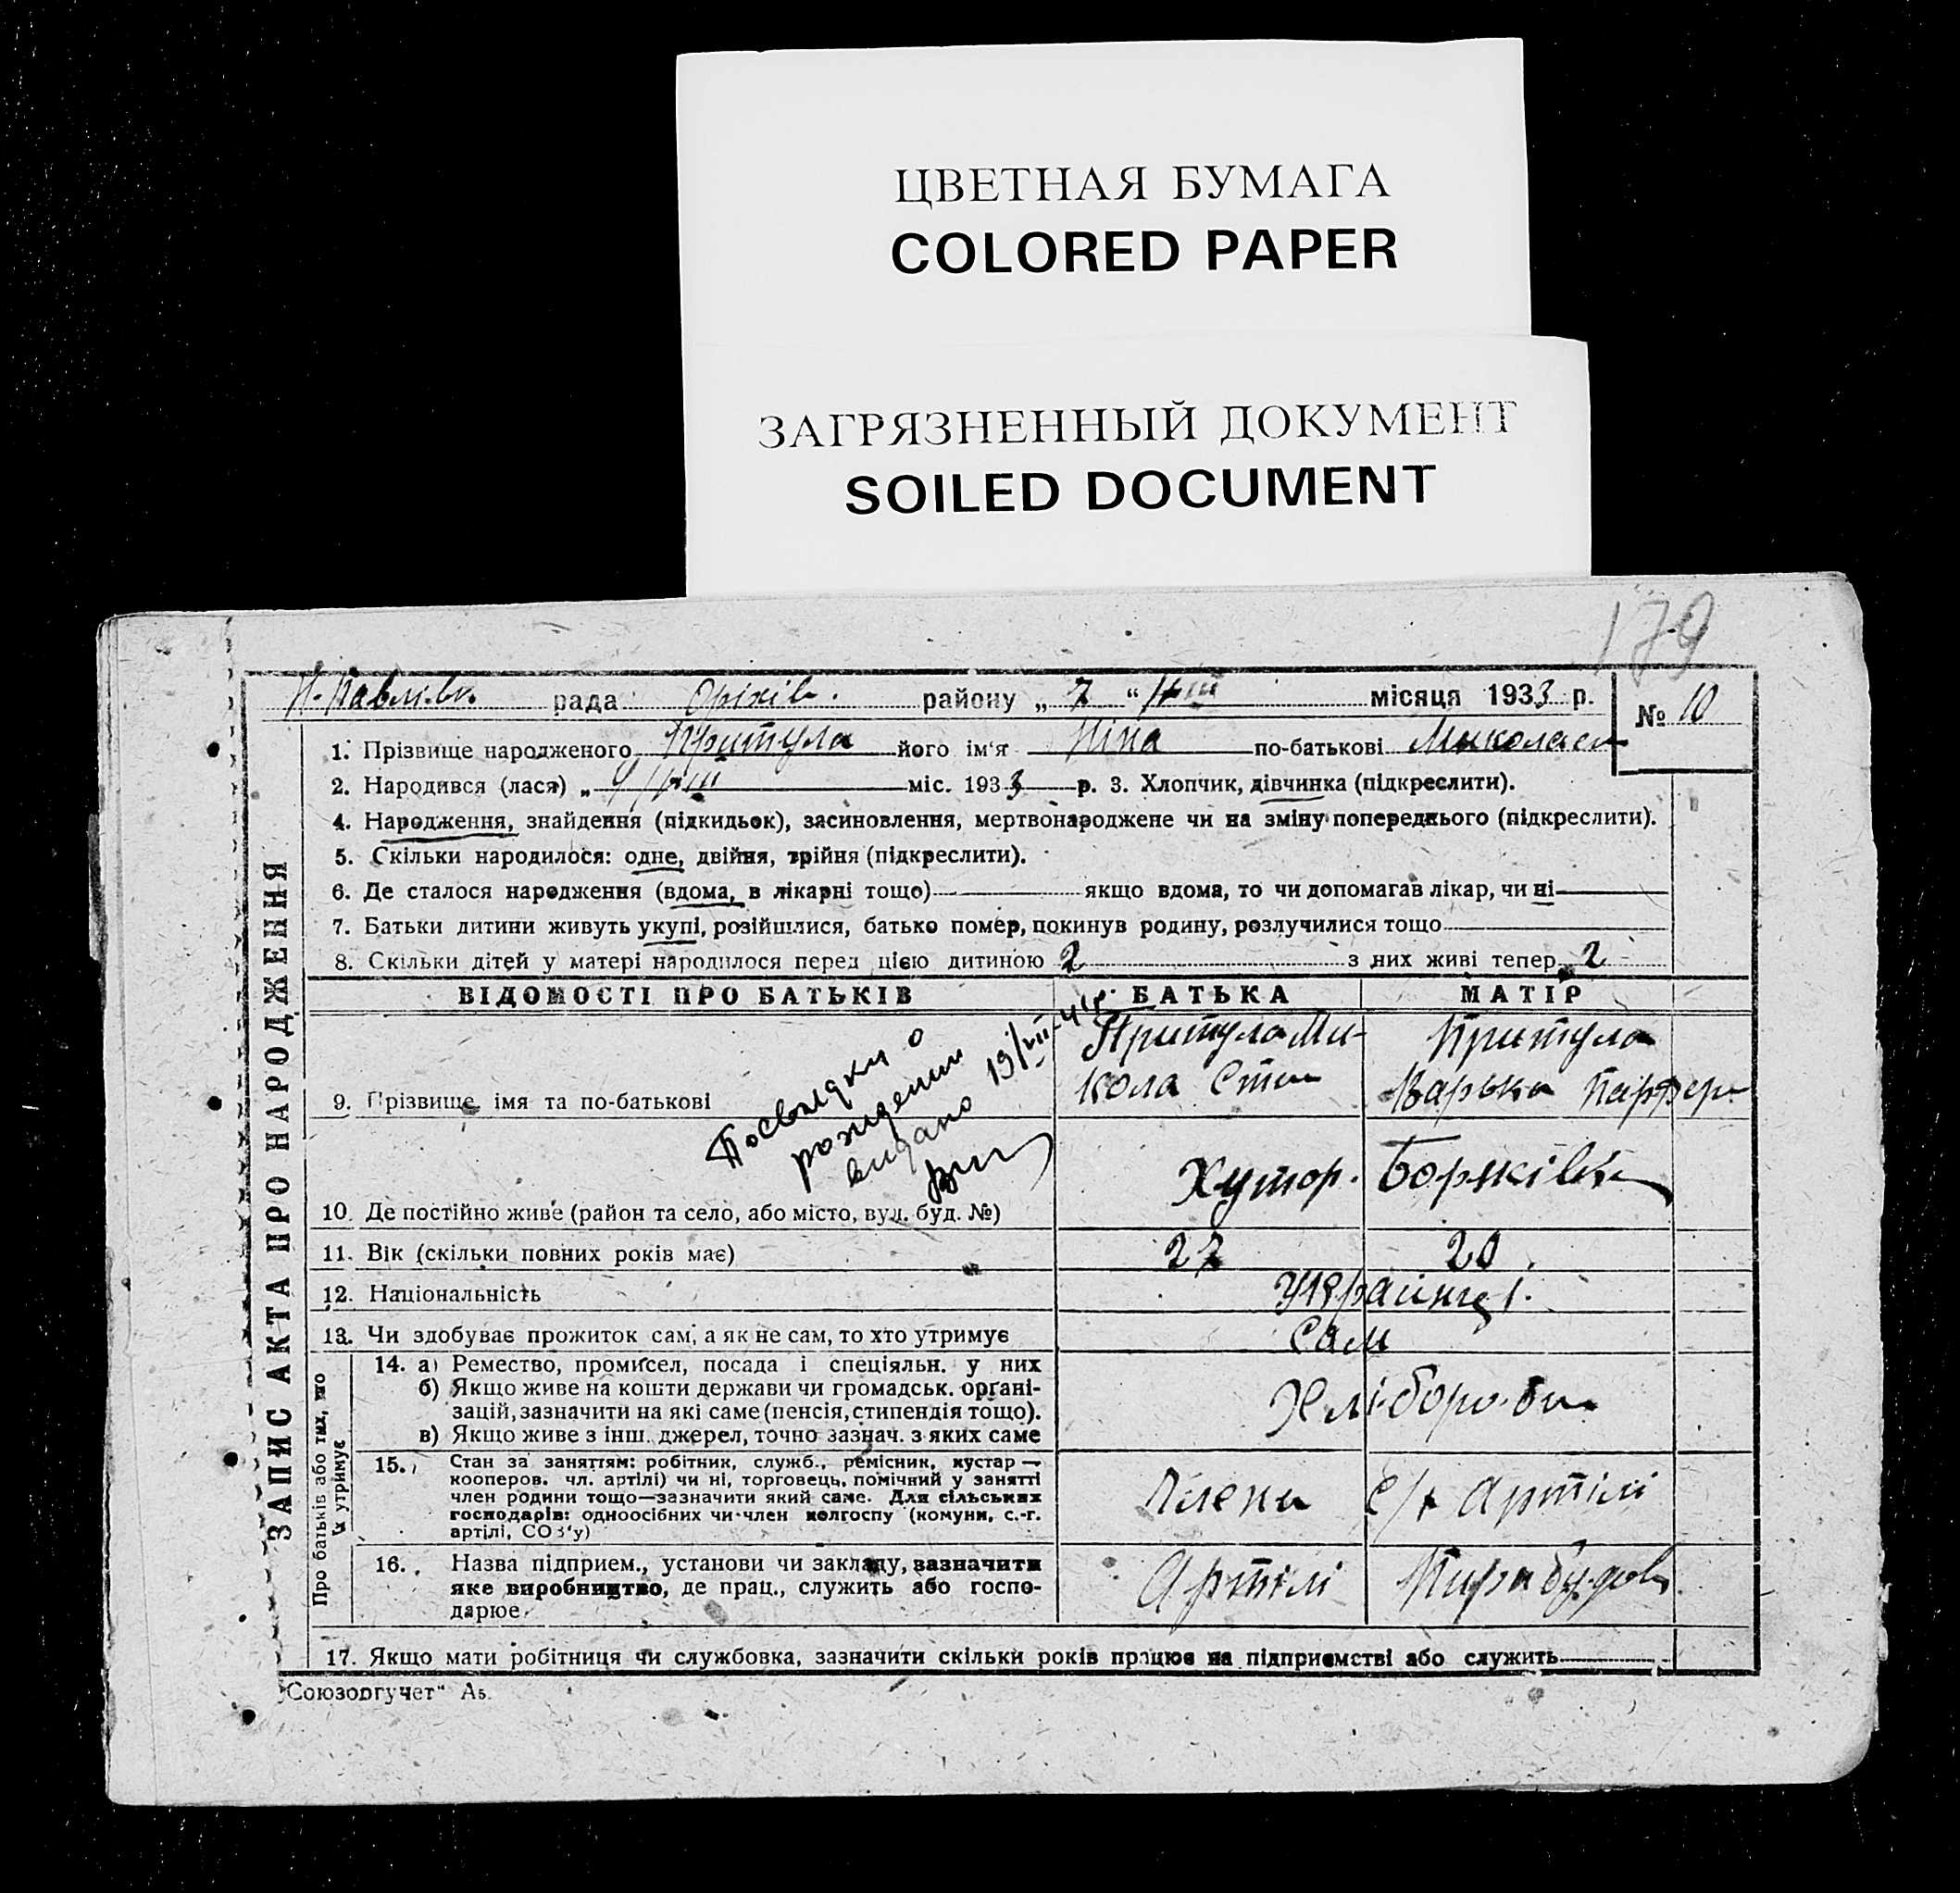 ЦВЕТНАЯ БУМАГА
COLORED PAPER
ЗАГРЯЗНЕННЫЙ ДОКУМЕНТ
SOILED DOCUMENT
179
рада Оріхів. району „ 7 “ місяця 1933 р.
№ 10
1. Прізвище народженого Притула його ім'я Ніна по-батькові
2. Народився (лася) „ міс. 1933 р. 3. Хлопчик, дівчинка (підкреслити).
4. Народження, знайдення (підкидьок), засиновлення, мертвонароджене чи на зміну попереднього (підкреслити).
5. Скільки народилося: одне, двійня, трійня (підкреслити).
6. Де сталося народження (вдома, в лікарні тощо) якщо вдома, то чи допомагав лікар, чи ні
7. Батьки дитини живуть укупі, розійшлися, батько помер, покинув родину, розлучилися тощо
8. Скільки дітей у матері народилося перед цією дитиною 2 з них живі тепер 2
ЗАПИС АКТА ПРО НАРОДЖЕННЯ
ВІДОМОСТІ ПРО БАТЬКІВ БАТЬКА МАТІР
Притула Ми-
кола
Притула
Варька
9. Прізвище, імя та по-батькові
рождении
видано 19/VII-
Хутор.
10. Де постійно живе (район та село, або місто, вул. буд. №)
11. Вік (скільки повних років має) 27 20
12. Національність Українці.
13. Чи здобуває прожиток сам, а як не сам, то хто утримує сам
Про батьків або тих, хто
їх утримує
14. а) Ремество, промисел, посада і спеціяльн. у них
б) Якщо живе на кошти держави чи громадськ. органі-
зацій, зазначити на які саме (пенсія, стипендія тощо).
в) Якщо живе з інш. джерел, точно зазнач. з яких саме
Хліборо.би
15. Стан за заняттям: робітник, служб., ремісник, кустар —
кооперов. чл. артілі) чи ні, торговець, помічний у занятті
член родини тощо—зазначити який саме. Для сільських
господарів: одноосібних чи член колгоспу (комуни, с.-г.
артілі, СОЗ'у)
Члени с/г Артілі
16. Назва підприєм., установи чи закладу, зазначити
яке виробництво, де прац., служить або госпо-
дарює
Артілі
17. Якщо мати робітниця чи службовка, зазначити скільки років працює на підприємстві або служить
„Союзоргучет“